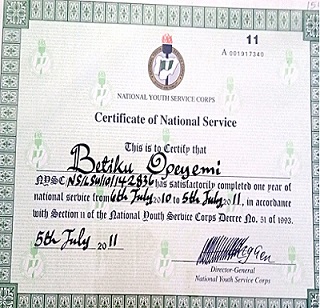 11
A 001917340
NATIONAL YOUTH SERVICE CORPS
Certificate of National Service
This is to Certify that
Betiku Opeyemi
NYSC/NS/LSU/10/142836 has satisfactorily completed one year of
national service from 6th July 2010 to 5th July 2011, in accordance
with Section 11 of the National Youth Service Corps Decree No. 51 of 1993.
5th July 2011
Director-General
National Youth Service Corps